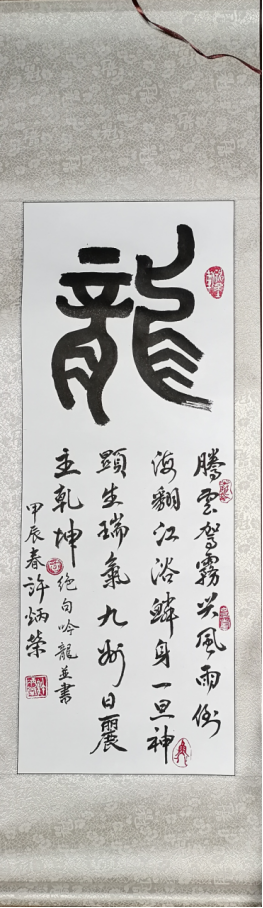 龍
騰雲駕霧興風雨倒
海翻江浴鱗身一旦神
顯生瑞氣九州日麗
主乾坤
絕句吟龍並書
甲辰春許炳榮